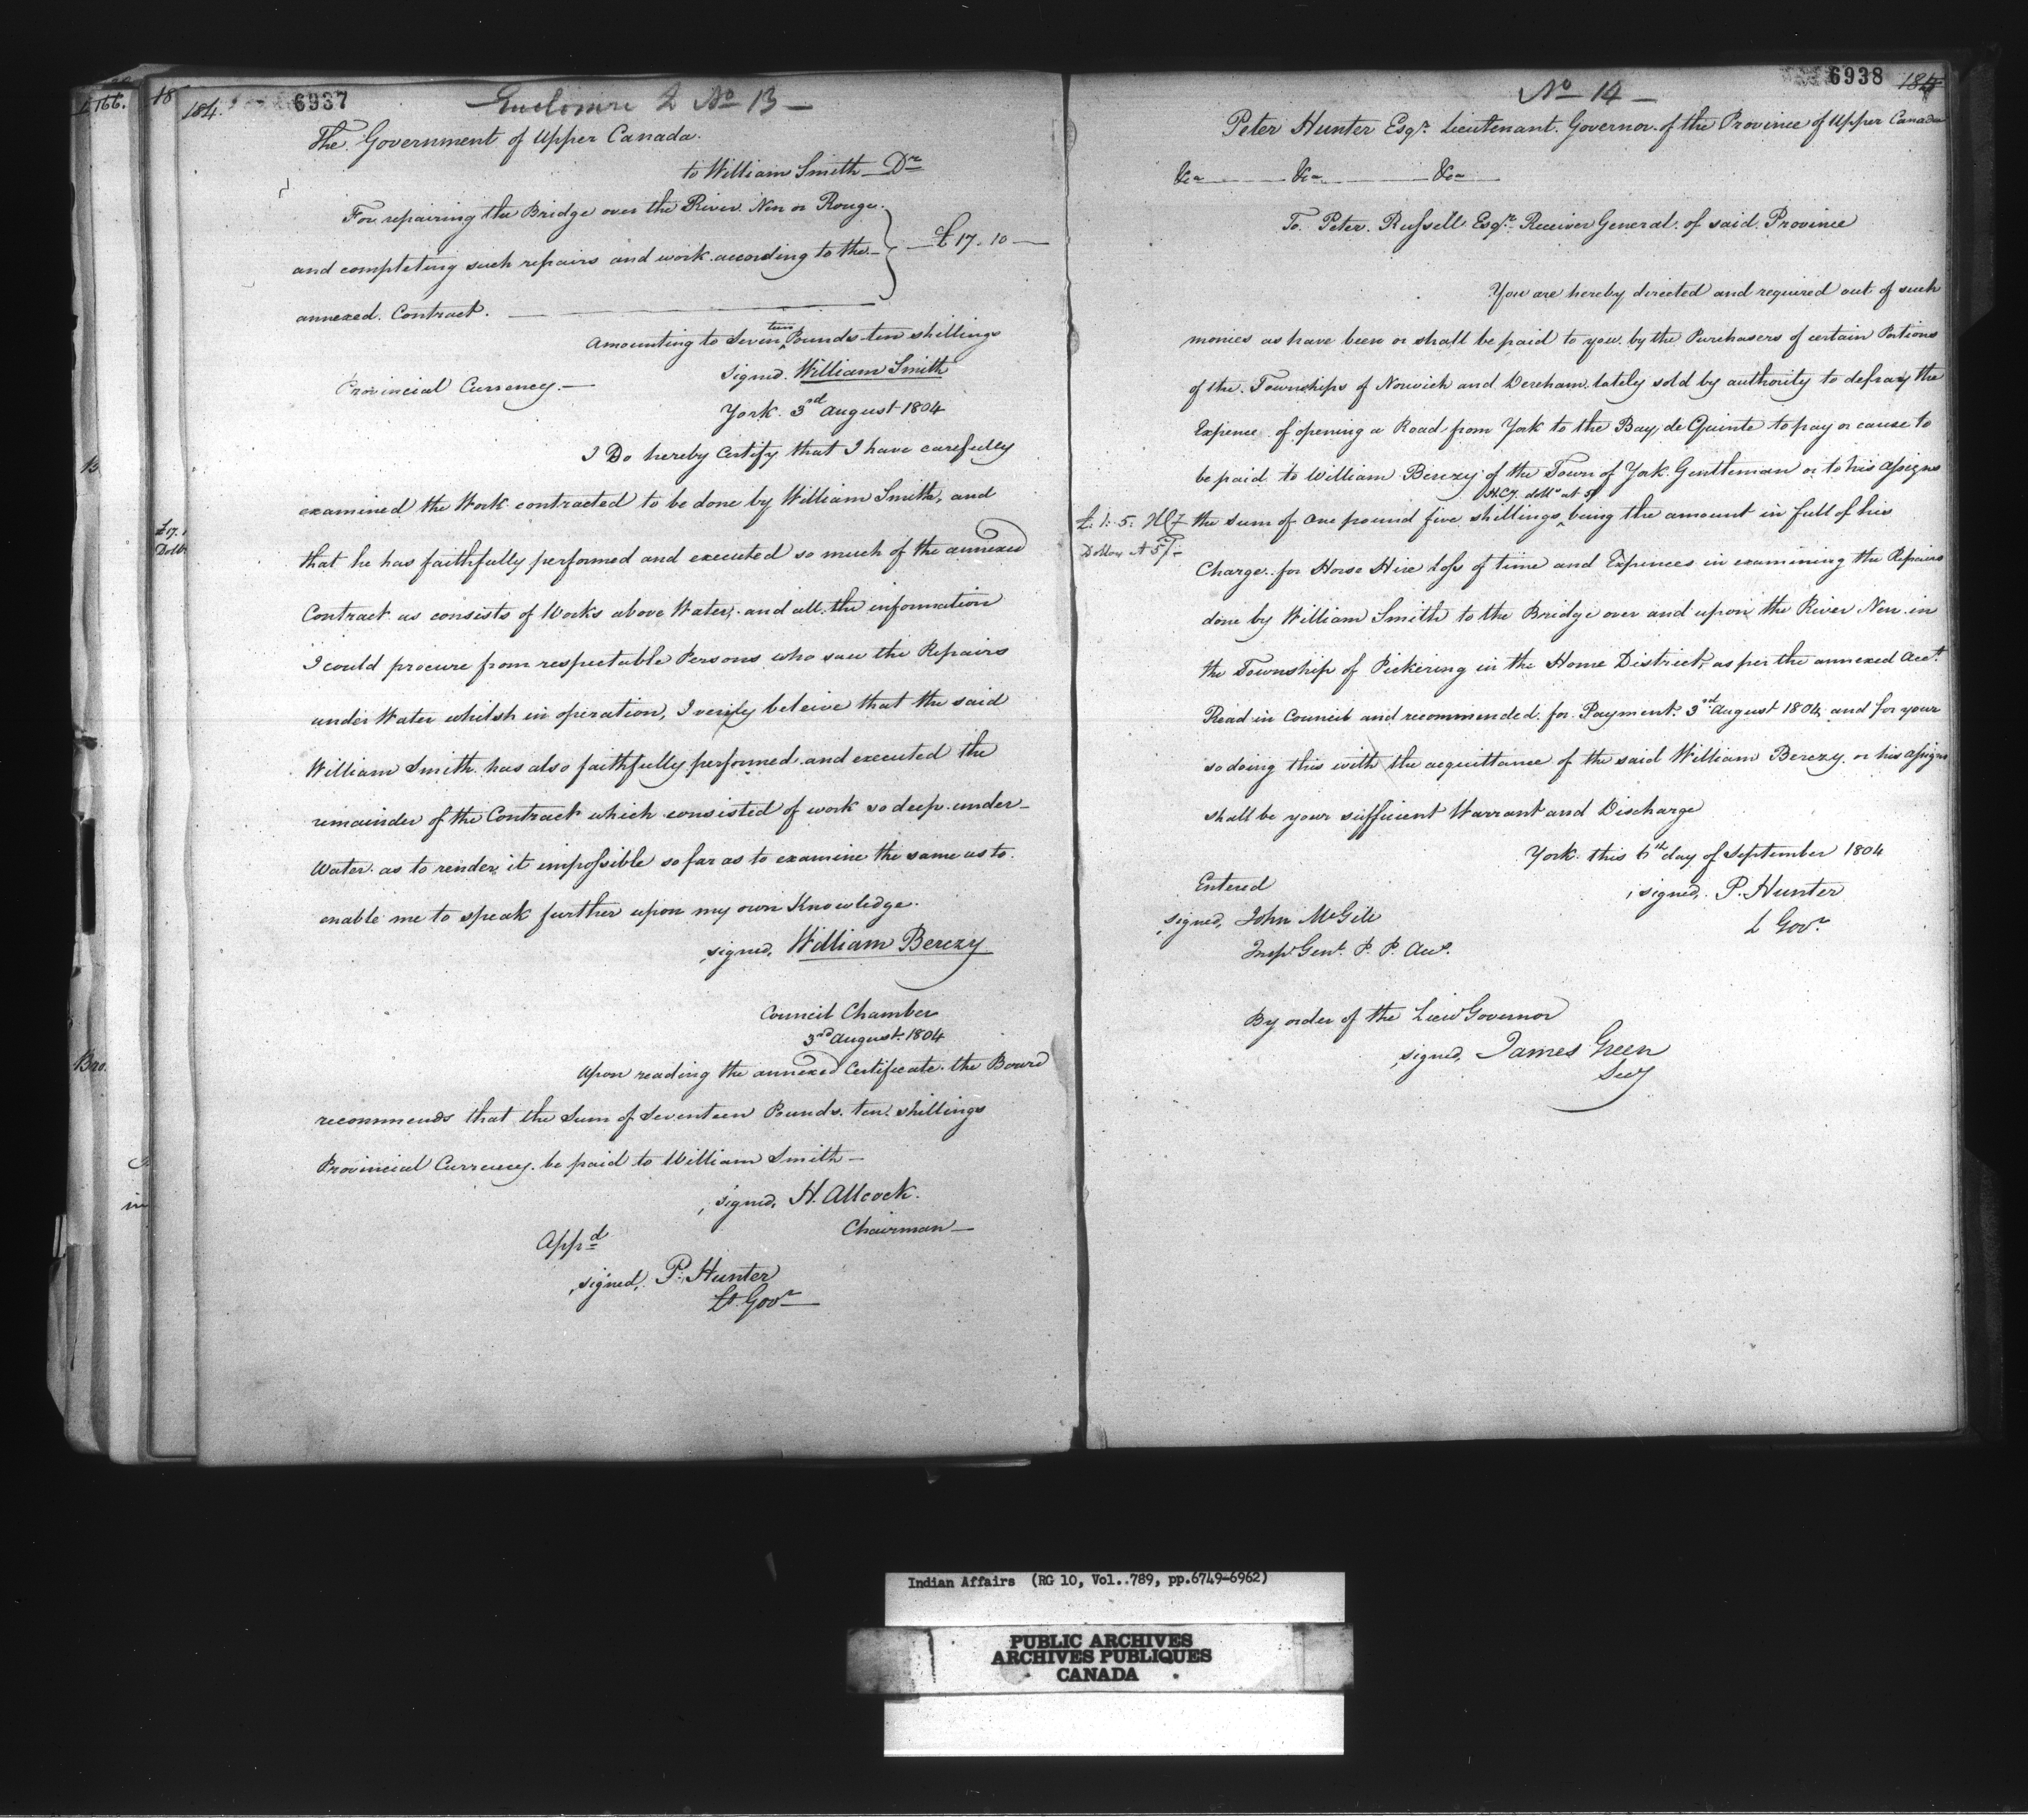 184. 6937 Enclosure 2 No 13 —
The Government of Upper Canada.
to William Smith — Dr
For repairing the Bridge over the River Nen or Rouge
and completing such repairs and work according to the — £17. 10 —
annexed Contract. —
Amounting to Seventeen Pounds ten shillings
Provincial Currency. — Signed. William Smith
York. 3rd August 1804
I Do hereby Certify that I have carefully
examined the Work contracted to be done by William Smith, and
that he has faithfully performed and executed so much of the annexed
Contract as consists of Works above Water, and all the information
I could procure from respectable Persons who saw the Repairs
under Water whilsh in operation, I verily beleive that the said
William Smith has also faithfully performed and executed the
remainder of the Contract which consisted of work so deep under
Water as to render it impossible so far as to examine the same as to
enable me to speak further upon my own Knowledge.
signed, William Berczy
Council Chamber
3rd August 1804
Upon reading the annexed Certificate the Board
recommends that the Sum of Seventeen Pounds ten shillings
Provincial Currency be paid to William Smith —
signed, H. Allcock.
Chairman —
Appd
signed, P. Hunter
Lt Govr —
6938 185
No 14 —
Peter Hunter Esqr. Lieutenant Governor of the Province of Upper Canada
&ca — &ca — &ca —
To Peter Russell Esqr. Receiver General of said Province
You are hereby directed and required out of such
monies as have been or shall be paid to you by the Purchasers of certain Portions
of the Townships of Norwich and Dereham lately sold by authority to defray the
Expence of opening a Road from York to the Bay de Quinte to pay or cause to
be paid to William Berczy of the Town of York Gentleman or to his assigns
HCy. dolls at 5/
£1. 5. HCy the sum of One pound five shillings being the amount in full of his
Dollar At 5/- Charge for Horse Hire Loss of time and Expences in examining the Repairs
done by William Smith to the Bridge over and upon the River Nen in
the Township of Pickering in the Home District, as per the annexed Acct.
Read in Council and recommended for Payment 3rd August 1804 and for your
so doing this with the acquittance of the said William Berczy or his assigns
shall be your sufficient Warrant and Discharge
York this 6th day of September 1804
Entered signed, P. Hunter
signed, John McGill L Govr
Insp Genl. P. P. Acc.
By order of the Lieut Governor
signed, James Green
Secy
Indian Affairs (RG 10, Vol..789, pp.6749-6962)
PUBLIC ARCHIVES
ARCHIVES PUBLIQUES
CANADA